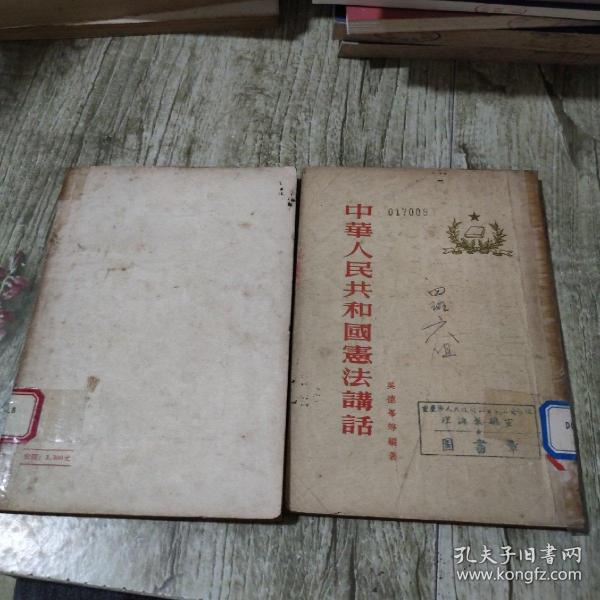 017009
中華人民共和國憲法講話
吴德峯等編著
四班六组
理論教研室
圖書章
定價：3,300元
孔夫子旧书网
www.kongfz.com